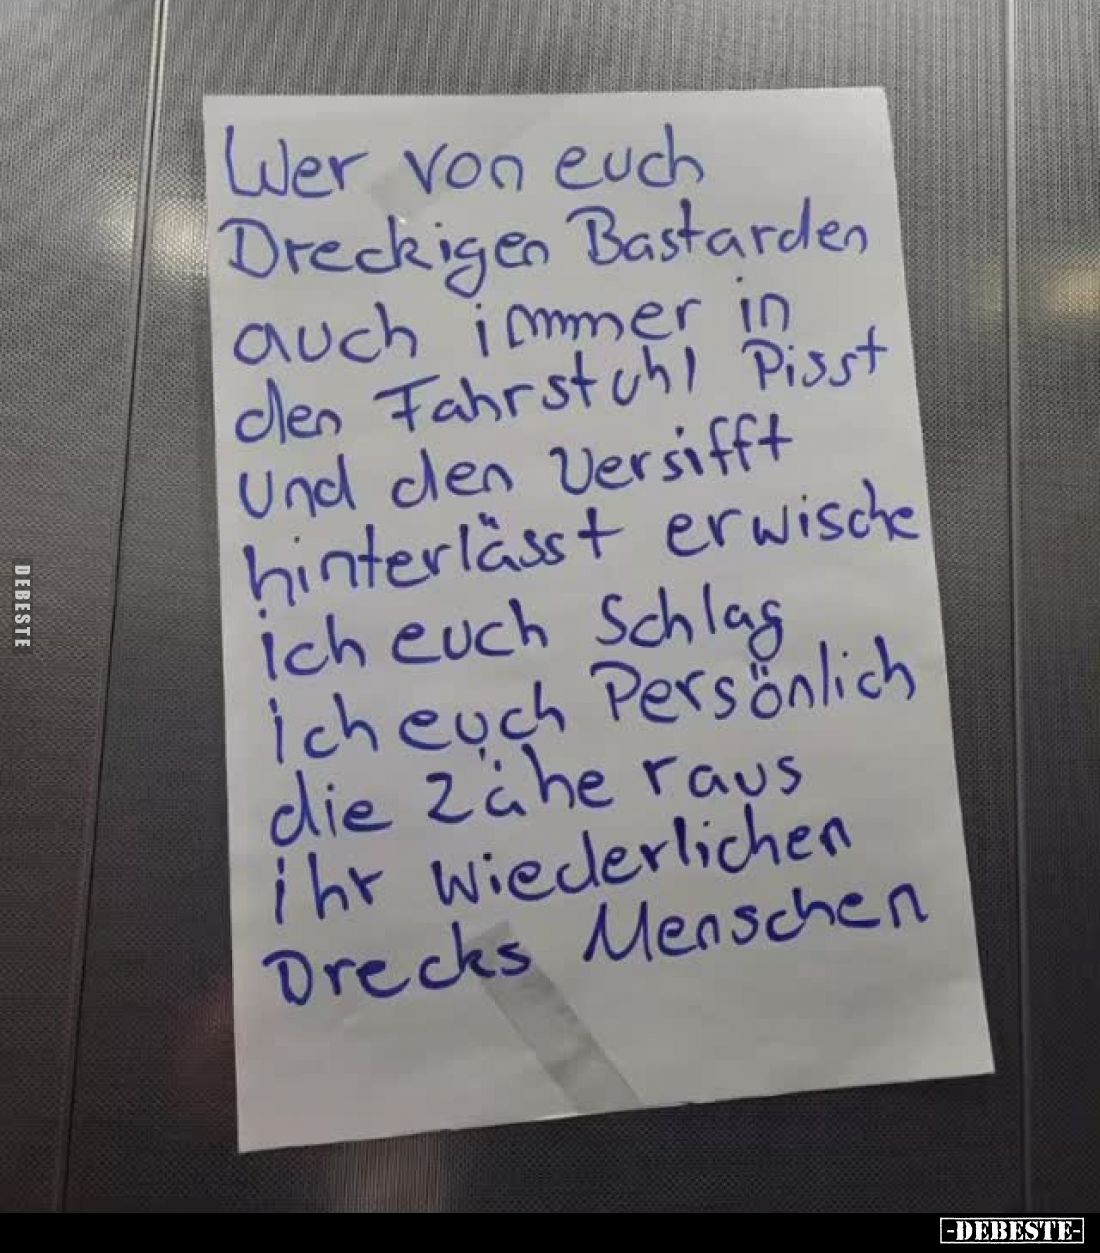 Wer von euch
Dreckigen Bastarden
auch immer in
den Fahrstuhl Pisst
und den Versifft
hinterlässt erwische
ich euch Schlag
ich euch Persönlich
die Zähe raus
ihr wiederlichen
Drecks Menschen
DEBESTE
-DEBESTE-